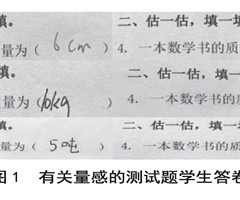 填。 二、估一估，填一填
量为（ 6cm ） 4. 一本数学书的质
填。 二、估一估，填一
量为（ 10kg ） 4. 一本数学书的质
二、估一估，填一
量为（ 50吨 ） 4. 一本数学书的质
图1 有关量感的测试题学生答卷